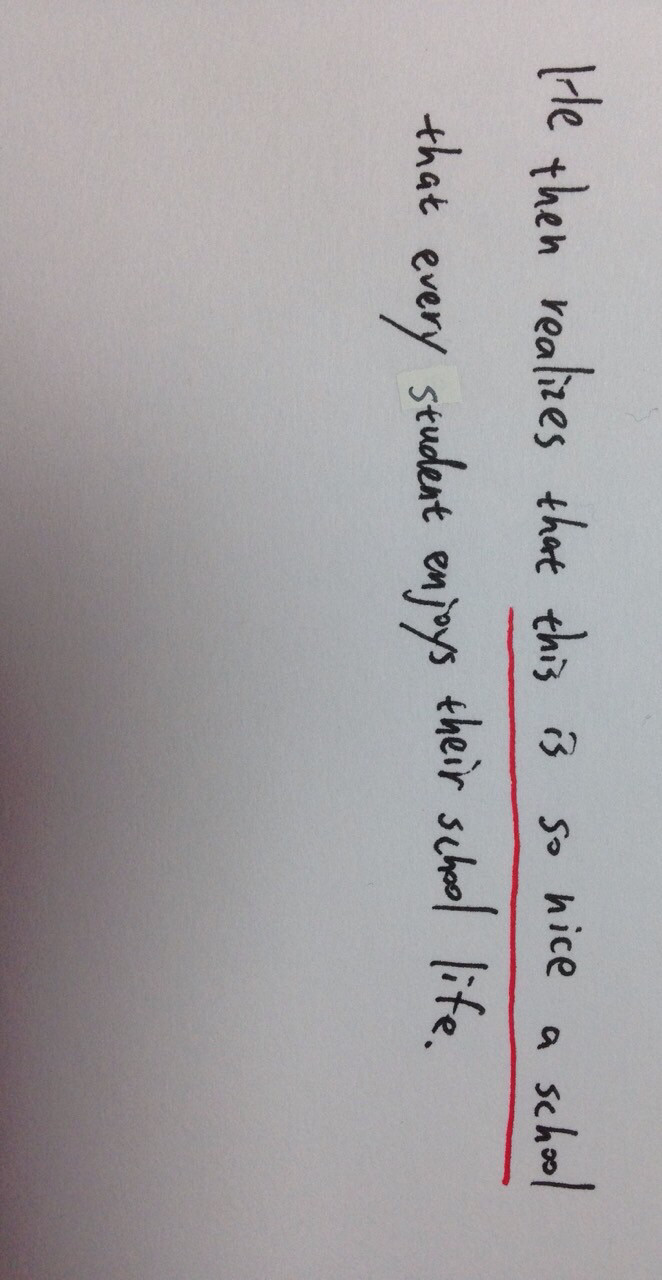 He then realizes that this is so nice a school
that every student enjoys their school life.